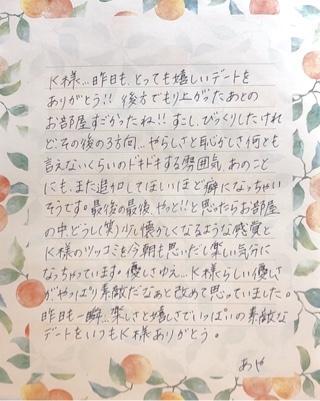 K様…昨日も、とっても嬉しいデートを
ありがとう!! 後方でもり上がったあとの
お部屋すごかったね!! すこし、びっくりしたけれ
ど、その後の3方向…やらしさと恥かしさ何とも
言えないくらいのドキドキする雰囲気 あのこと
にも、また追加してほしいほど癖になっちゃい
そうです。最後の最後、やっと!!と思ったらお部屋
の中どうし(笑)少し懐かしくなるような感覚と
K様のツッコミを今朝も思いだし楽しい気分に
なっちゃています。優しさゆえ…K様らしい優しさ
がやっぱり素敵だなぁと改めて思っていました。
昨日も一瞬…楽しさと嬉しさでいっぱいの素敵な
デートをいつもK様ありがとう。
あや